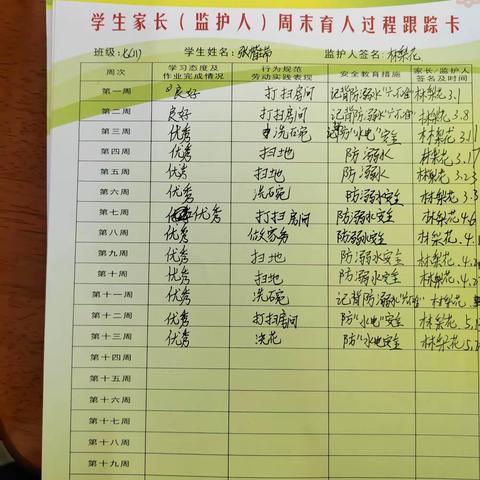 学生家长（监护人）周末育人过程跟踪卡
班级: 学生姓名: 监护人签名: 林梨花
周次 学习态度及作业完成情况 行为规范劳动实践表现 安全教育措施 家长/监护人签名及时间
第一周 良好 打扫房间 记背防溺水"六不准" 林梨花 3.1
第二周 良好 打扫房间 记背防溺水"六不准" 林梨花 3.8
第三周 优秀 洗碗 防"水电"安全 林梨花 3.11
第四周 优秀 扫地 防溺水 林梨花 3.17
第五周 优秀 扫地 防溺水 林梨花 3.23
第六周 优秀 洗碗 防溺水安全 林梨花 3.
第七周 优秀 打扫房间 防溺水安全 林梨花 4.6
第八周 优秀 做家务 防溺水安全 林梨花 4.
第九周 优秀 扫地 防溺水安全 林梨花 4.
第十周 优秀 扫地 防溺水安全 林梨花 4.
第十一周 优秀 洗碗 记背防溺水"六不准" 林梨花
第十二周 优秀 打扫房间 防"水电"安全 林梨花 5.
第十三周 优秀 浇花 防"水电"安全 林梨花 5.
第十四周
第十五周
第十六周
第十七周
第十八周
第十九周